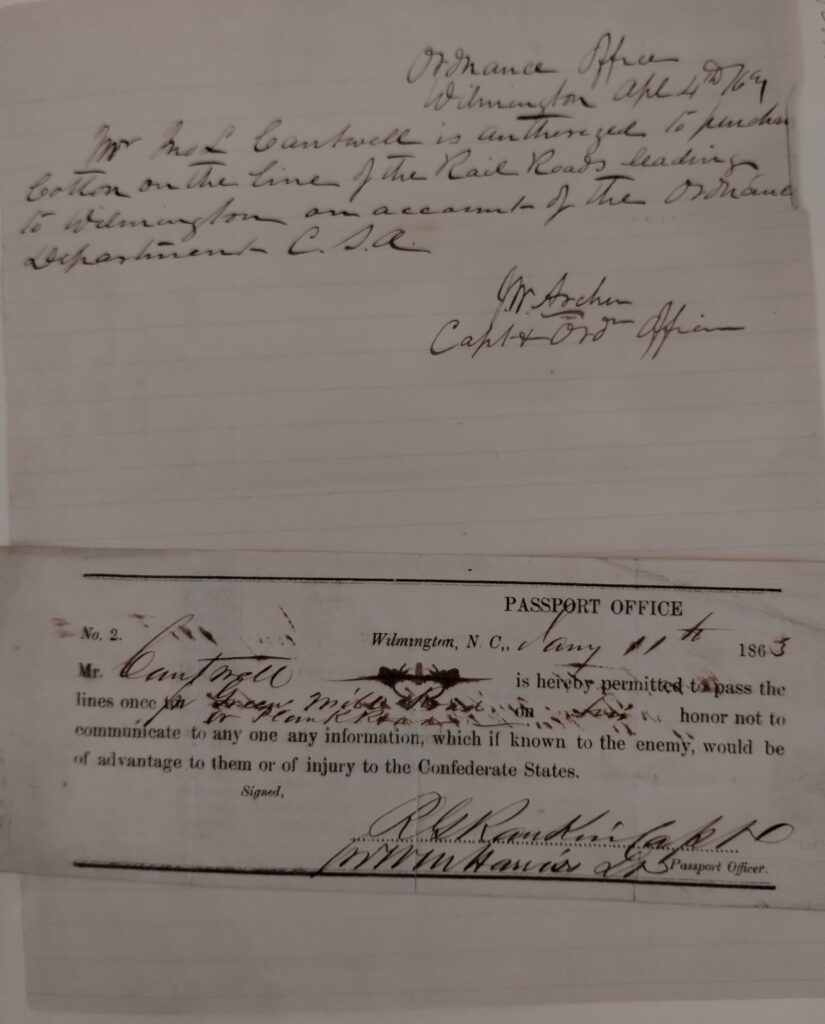 Ordnance Office
Wilmington Apl 4th /64
Mr Jno L Cantwell is authorized to purchase
Cotton on the line of the Rail Roads leading
to Wilmington on account of the Ordnance
Department C. S. A.
J.W. Archer
Capt & Ordn Officer
PASSPORT OFFICE
No. 2.
Wilmington, N. C., Jany 11th 1863
Mr. Cantwell is hereby permitted to pass the
lines once on his honor not to
or Plank Road
communicate to any one any information, which if known to the enemy, would be
of advantage to them or of injury to the Confederate States.
Signed,
R G Rankin Capt
Passport Officer.